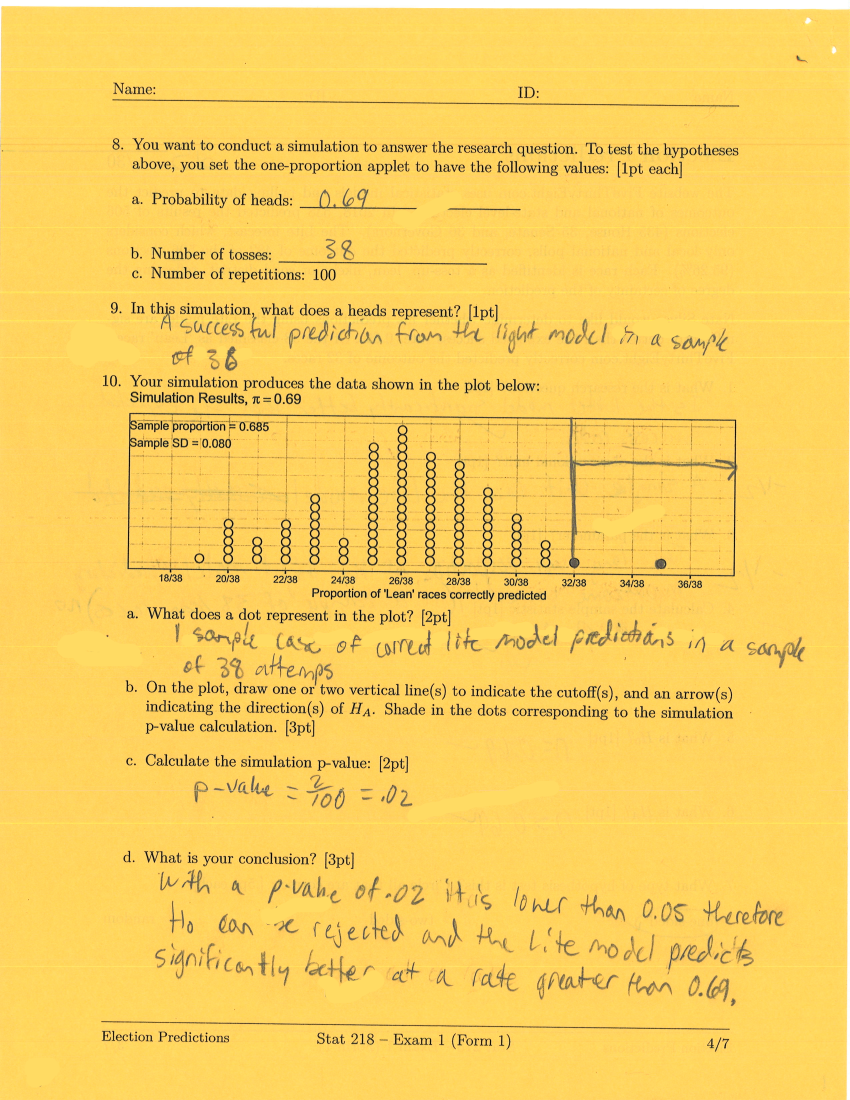 Name:
ID:
8. You want to conduct a simulation to answer the research question. To test the hypotheses
above, you set the one-proportion applet to have the following values: [1pt each]
a. Probability of heads: 0.69
b. Number of tosses: 38
c. Number of repetitions: 100
9. In this simulation, what does a heads represent? [1pt]
A successful prediction from the light model in a sample
of 38
10. Your simulation produces the data shown in the plot below:
Simulation Results, π = 0.69
Sample proportion = 0.685
Sample SD = 0.080
18/38 20/38 22/38 24/38 26/38 28/38 30/38 32/38 34/38 36/38
Proportion of 'Lean' races correctly predicted
a. What does a dot represent in the plot? [2pt]
1 sample case of correct lite model predictions in a sample
of 38 attemps
b. On the plot, draw one or two vertical line(s) to indicate the cutoff(s), and an arrow(s)
indicating the direction(s) of H_A. Shade in the dots corresponding to the simulation
p-value calculation. [3pt]
c. Calculate the simulation p-value: [2pt]
p-value = 2/100 = .02
d. What is your conclusion? [3pt]
With a p-value of .02 it is lower than 0.05 therefore
Ho can be rejected and the Lite model predicts
significantly better at a rate greater than 0.69.
Election Predictions
Stat 218 – Exam 1 (Form 1)
4/7